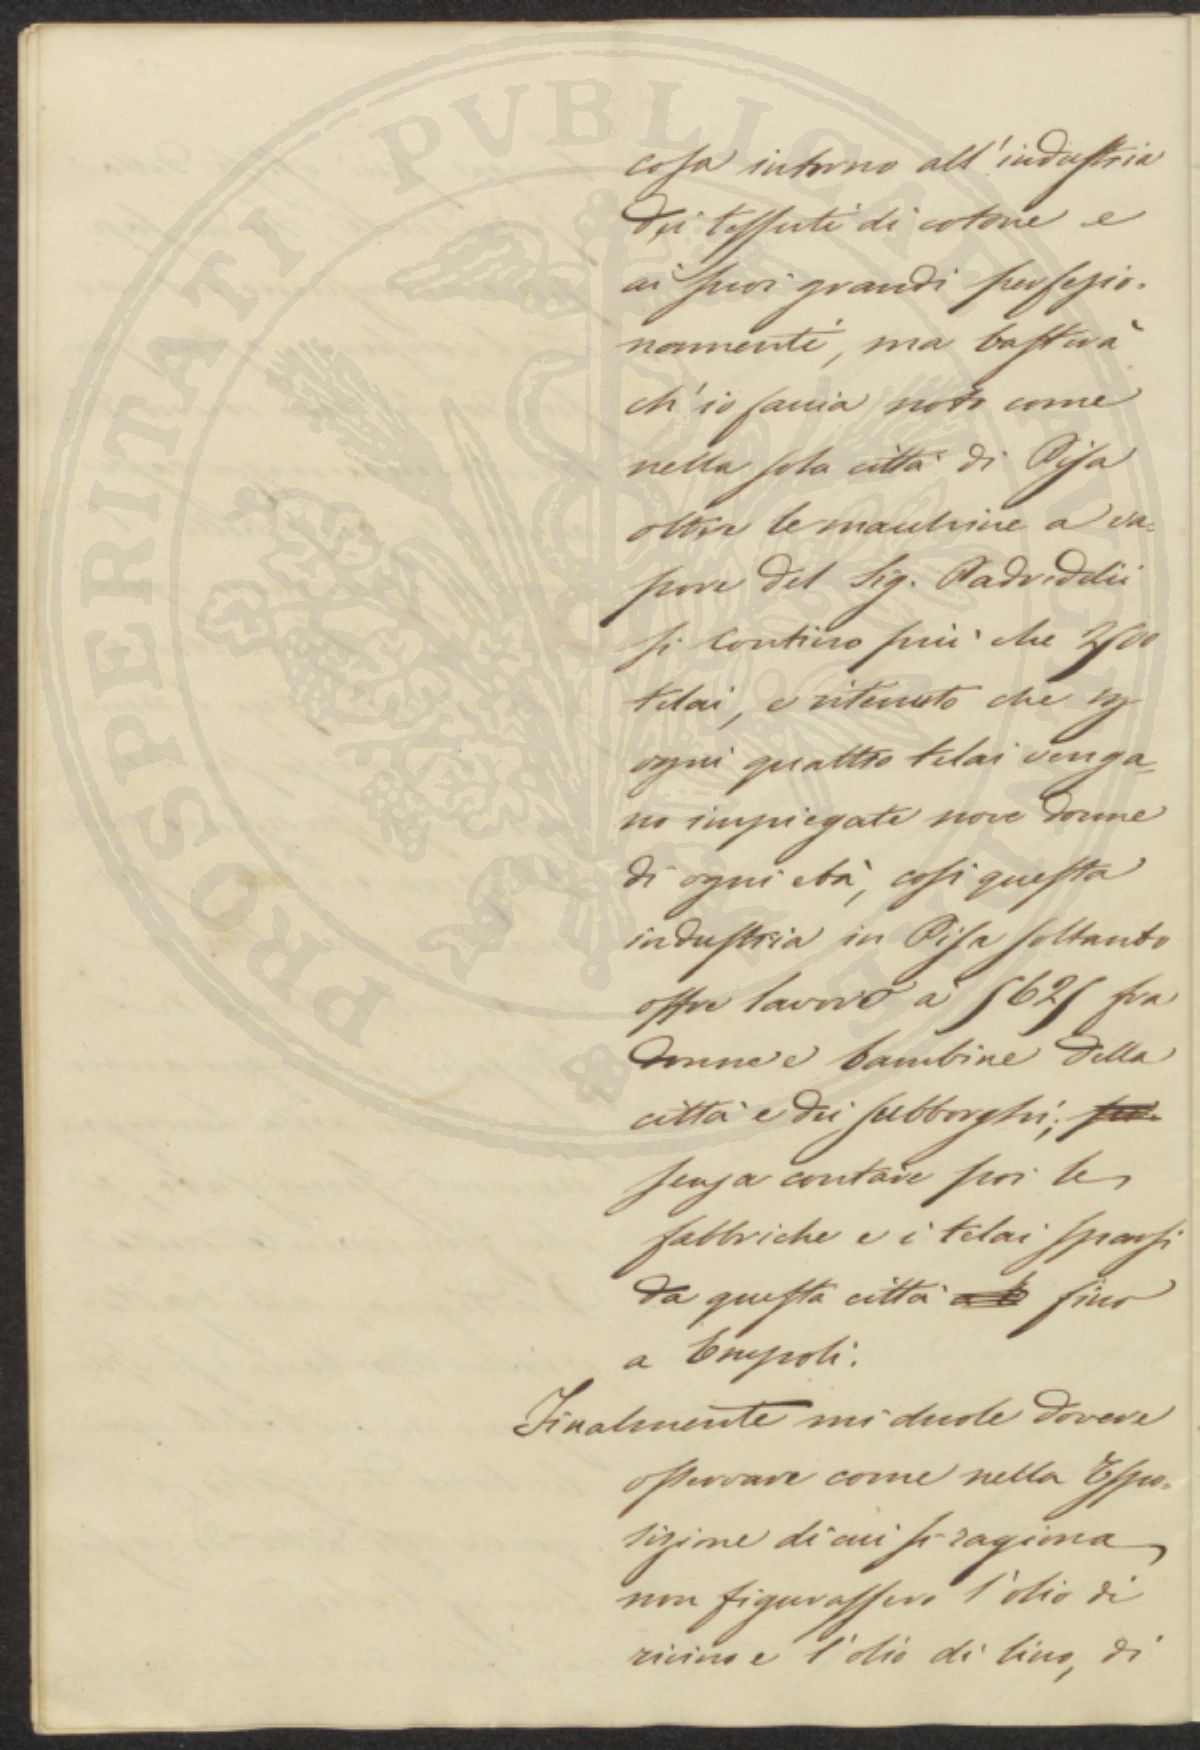 PROSPERITATI PVBLICAE AVGENDAE
cosa intorno all'industria
dei tessuti di cotone e
ai suoi grandi perfezio-
namenti, ma basterà
ch'io faccia noto come
nella sola città di Pisa
oltre le macchine a va-
pore del Sig. Padreddii
si contino più che 2500
telai, e ritenuto che
ogni quattro telai venga-
no impiegate nove donne
di ogni età, così questa
industria in Pisa soltanto
offre lavoro a 5625 fra
donne e bambine della
città e dei subborghi;
senza contare poi le
fabbriche e i telai sparsi
da questa città fino
a Empoli.
Finalmente mi duole dovere
osservare come nella Espo-
sizione di cui si ragiona
non figurassero l'olio di
ricino e l'olio di lino, di